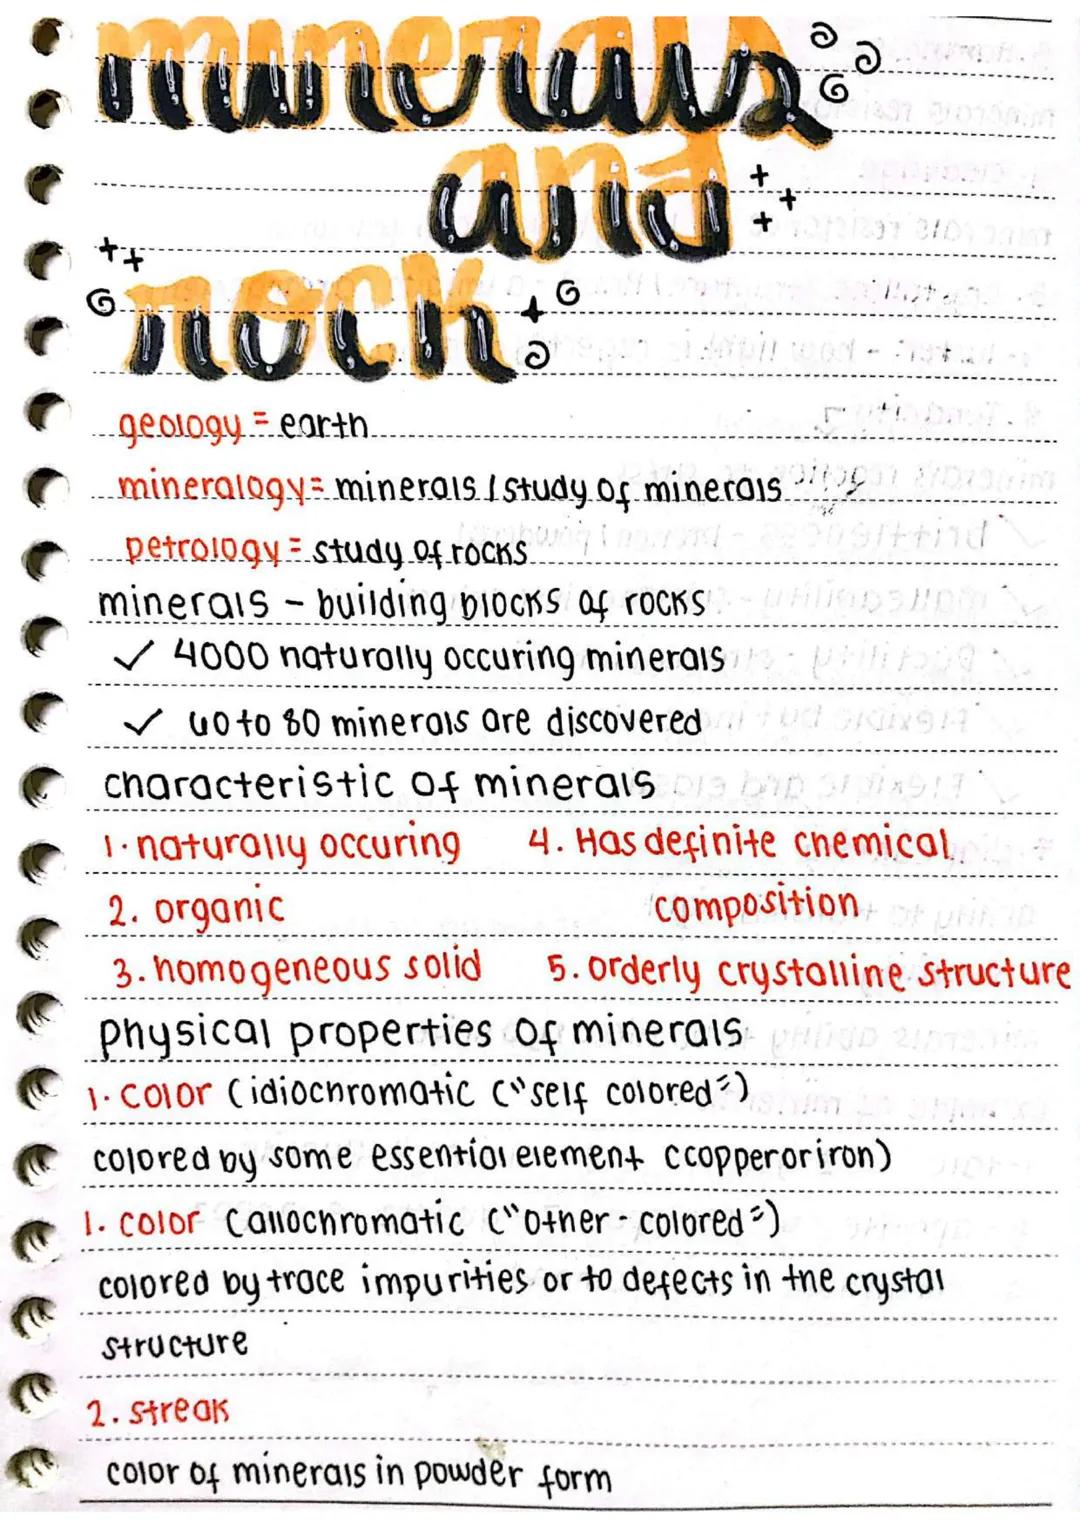 minerals
and
rock
geology = earth
mineralogy = minerals / study of minerals
petrology = study of rocks
minerals - building blocks of rocks
✓ 4000 naturally occuring minerals
✓ 40 to 80 minerals are discovered
characteristic of minerals
1. naturally occuring
2. organic
3. homogeneous solid
4. Has definite chemical
composition
5. orderly crystalline structure
physical properties of minerals
1. color (idiochromatic ("self colored")
colored by some essential element (copper or iron)
1. color (allochromatic ("other-colored")
colored by trace impurities or to defects in the crystal
structure
2. streak
color of minerals in powder form